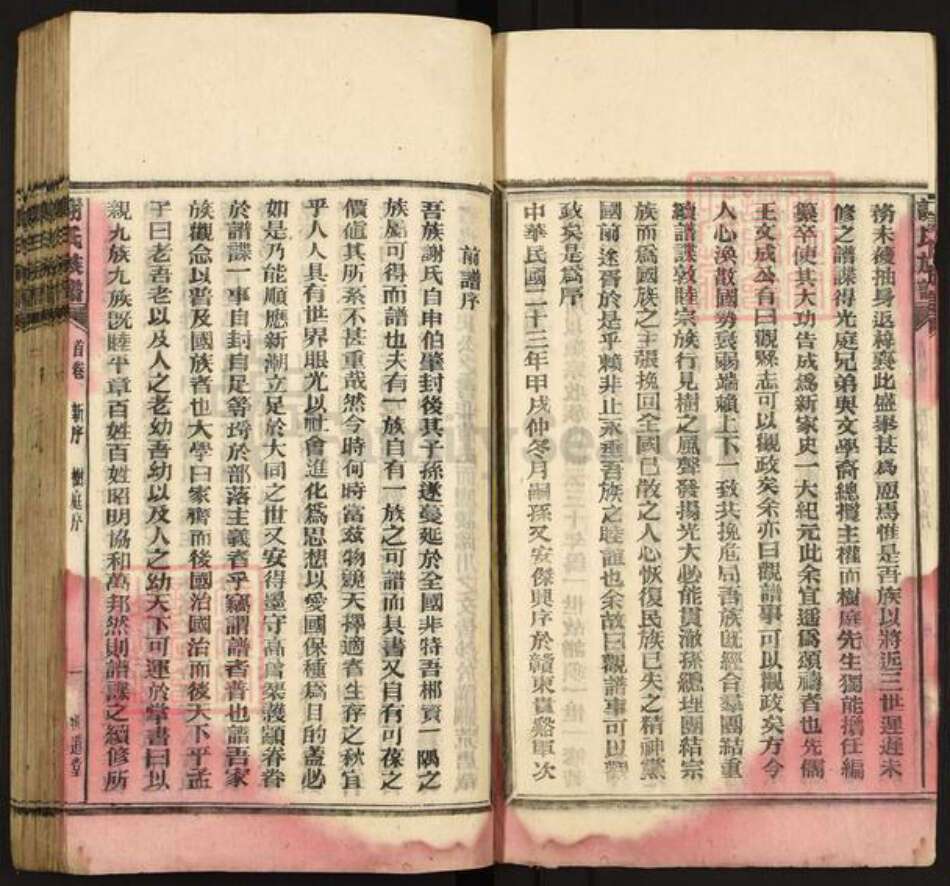 務未獲抽身返梓襄此盛舉甚為恧焉惟是吾族以將近三世遲遲未
修之譜諜得光庭兄弟與文學裔總攬主權而樹庭先生獨能擔任編
纂卒使其大功告成爲新家史一大紀元此余宜遥爲頌禱者也先儒
王文成公有曰觀縣志可以觀政矣余亦曰觀譜事可以觀政矣方今
人心渙散國勢衰弱端賴上下一致共挽危局吾族旣經合羣團結重
續譜諜敦睦宗族行見樹之風聲發揚光大必能貫澈孫總理團結宗
族而爲國族之主張挽回全國已散之人心恢復民族已失之精神黨
國前途胥於是乎賴非止永垂吾族之睦誼也余故曰觀譜事可以觀
政矣是爲序
中華民國二十三年甲戌仲冬月嗣孫又安傑興序於贛東貴谿軍次
謝氏族譜
前譜序
吾族謝氏自申伯肇封後其子孫遂蔓延於全國非特吾郴資一隅之
族屬可得而譜也夫有一族自有一族之可譜而其書又自有可葆之
價值其所系不甚重哉然今時何時富兹物競天擇適者生存之秋宜
乎人人具有世界眼光以社會進化爲思想以愛國保種爲目的蓋必
如是乃能順應新潮立足於大同之世又安得墨守高曾榘矱顓眷眷
於譜諜一事自封自足等誚於部落主義者乎竊謂譜者普也譜吾家
族觀念以普及國族者也大學曰家齊而後國治國治而後天下平孟
子曰老吾老以及人之老幼吾幼以及人之幼天下可運於掌書曰以
親九族九族旣睦平章百姓百姓昭明協和萬邦然則譜諜之續修所
謝氏族譜 首卷 新序 樹庭序 一 道堂